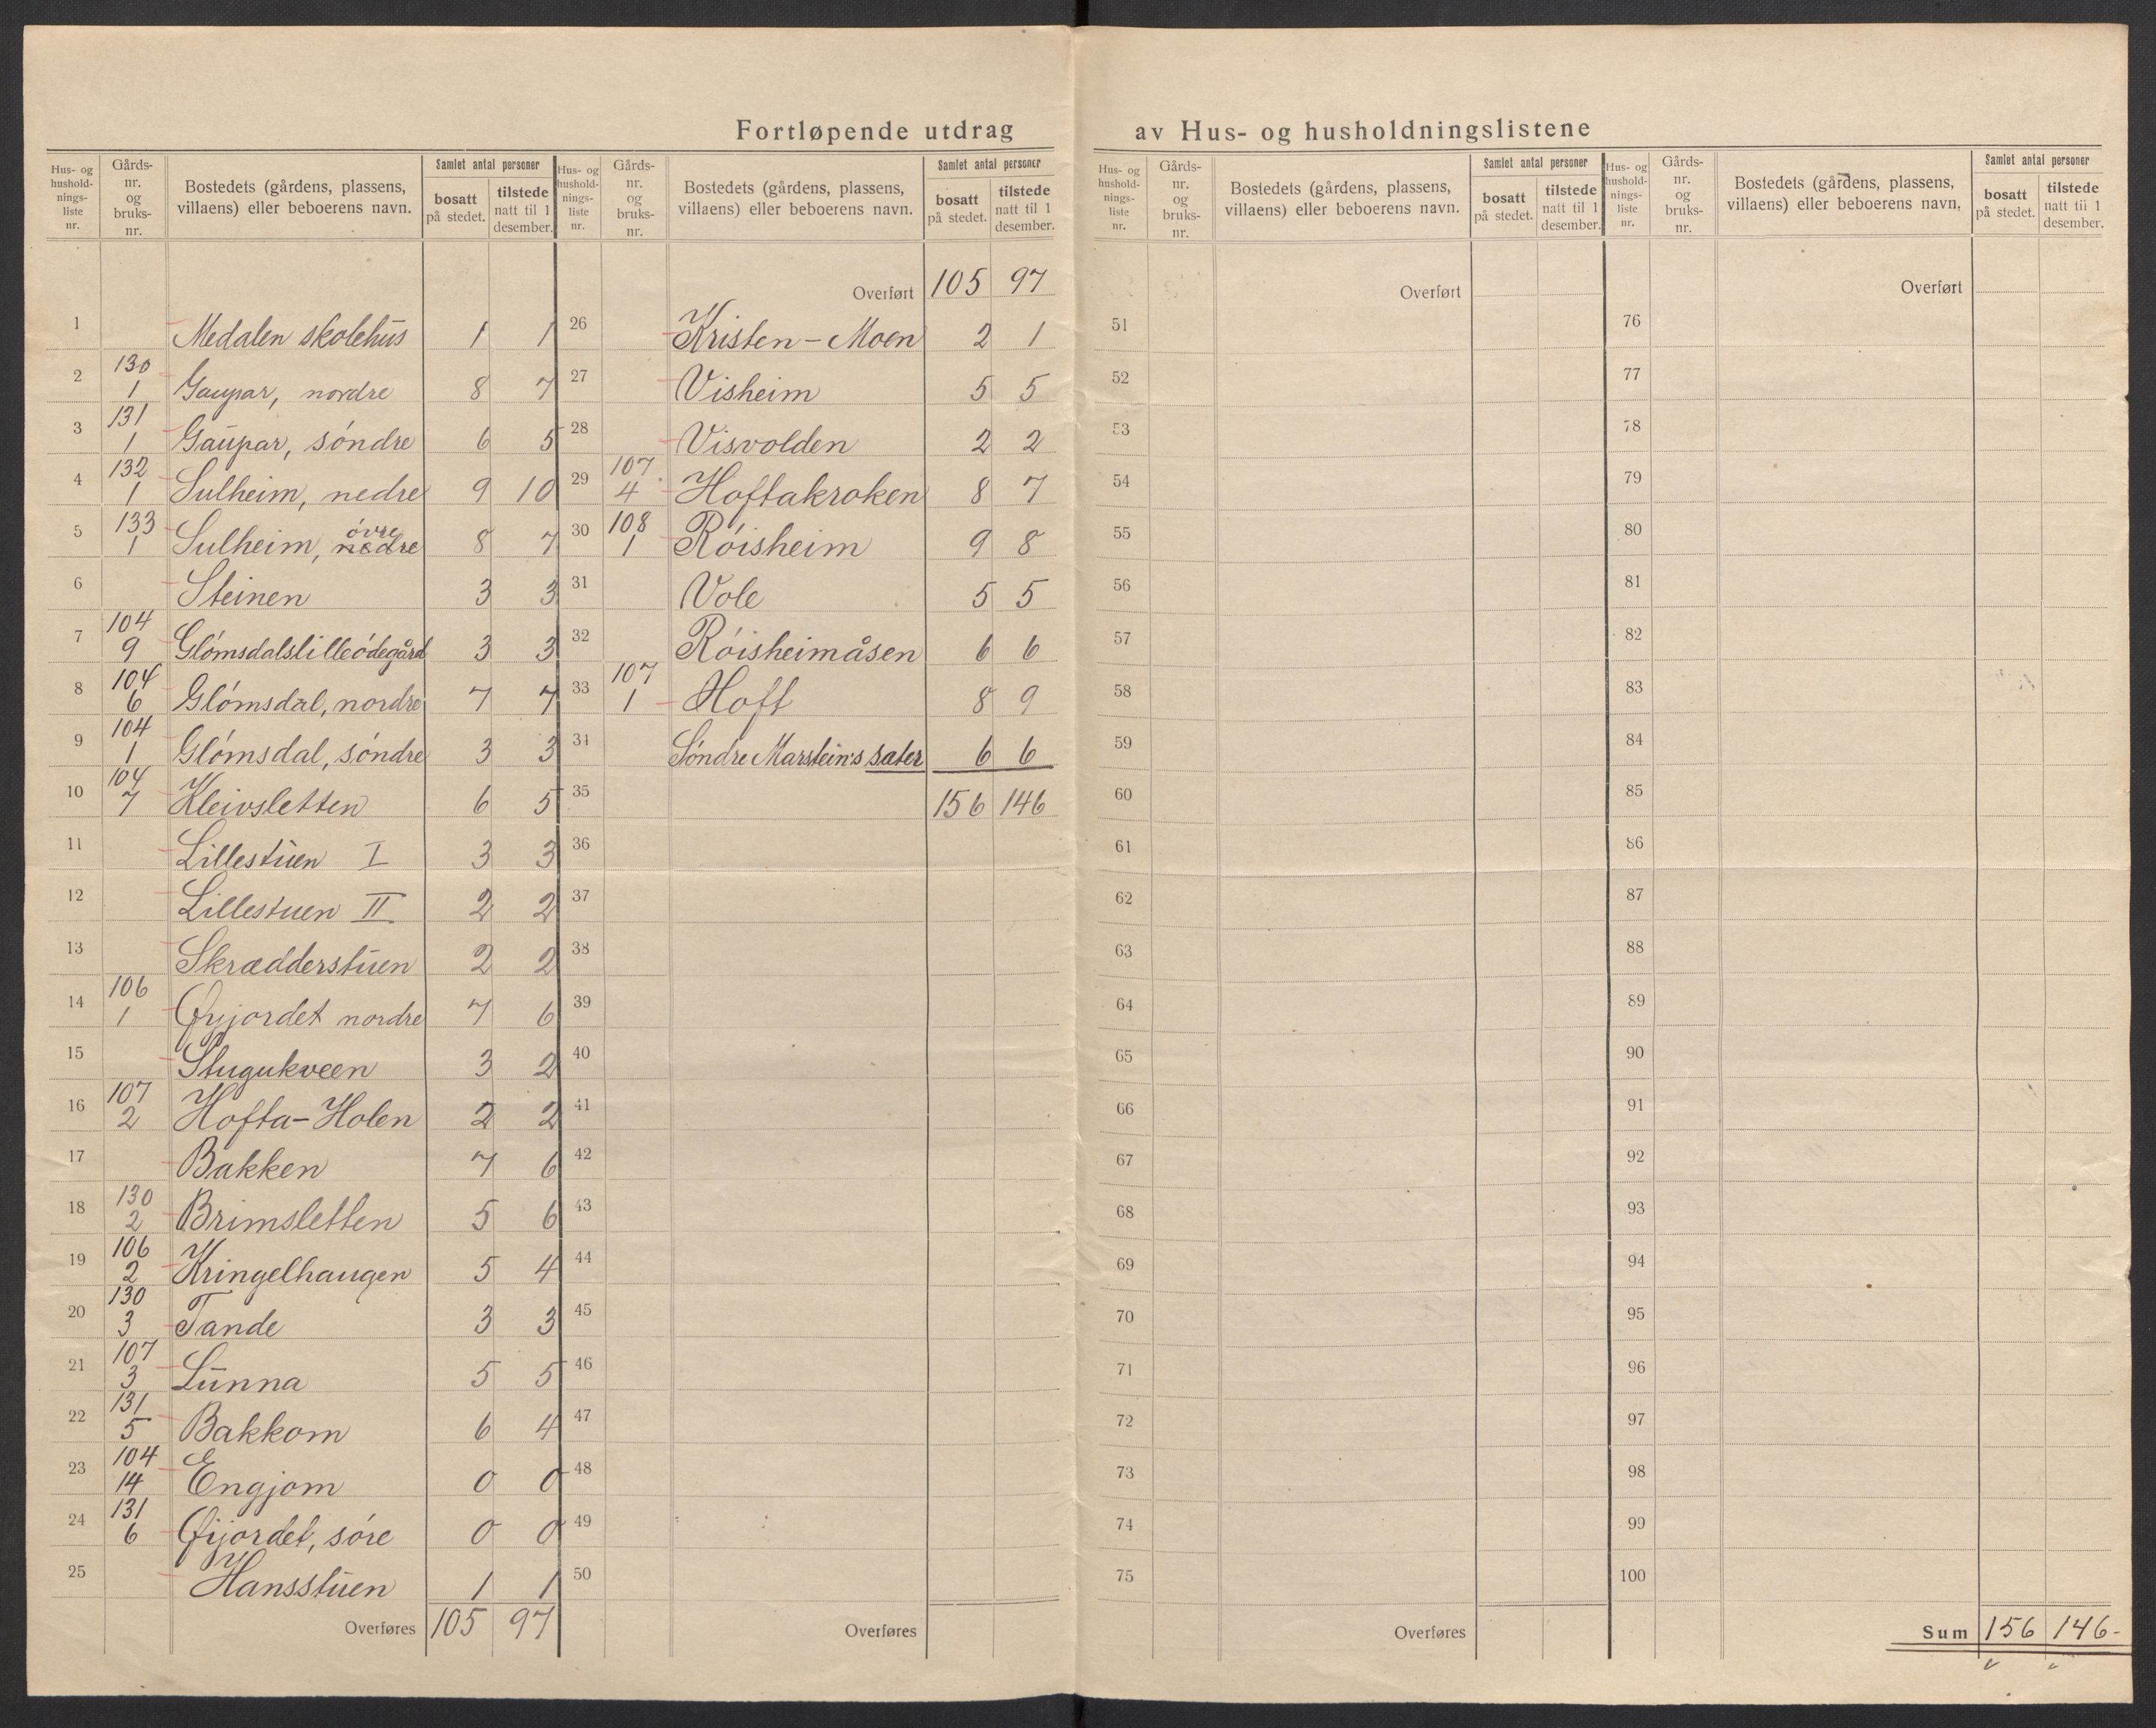 Fortløpende utdrag av Hus- og husholdningslistene
Hus- og hushold-nings-liste nr. | Gårds-nr. og bruks-nr. | Bostedets (gårdens, plassens, villaens) eller beboerens navn. | Samlet antal personer | bosatt på stedet. | tilstede natt til 1 desember.
1 Medalen skolehus 1 1
2 130/1 Gaupar, nordre 8 7
3 131/1 Gaupar, söndre 6 5
4 132/1 Sulheim, nedre 9 10
5 133/1 Sulheim, nedre övre 8 7
6 Steinen 3 3
7 104/9 Glómsdalslilleódegård 3 3
8 104/6 Glómsdal, nordre 7 7
9 104/1 Glómsdal, söndre 3 3
10 104/7 Kleivsletten 6 5
11 Lillestuen I 3 3
12 Lillestuen II 2 2
13 Skrædderstuen 2 2
14 106/1 Øyjordet nordre 7 6
15 Stugukveen 3 2
16 107/2 Hofta-Holen 2 2
17 Bakken 7 6
18 130/2 Brimsletten 5 6
19 106/2 Kringelhaugen 5 4
20 130/3 Tande 3 3
21 107/3 Lunna 5 5
22 131/5 Bakkom 6 4
23 104/14 Engjom 0 0
24 131/6 Øijordet, söre 0 0
25 Hansstuen 1 1
Overføres 105 97
Hus- og hushold-nings-liste nr. | Gårds-nr. og bruks-nr. | Bostedets (gårdens, plassens, villaens) eller beboerens navn. | Samlet antal personer | bosatt på stedet. | tilstede natt til 1 desember.
Overført 105 97
26 Kristen-Moen 2 1
27 Visheim 5 5
28 Visvolden 2 2
29 107/4 Hoftakroken 8 7
30 108/1 Róisheim 9 8
31 Vole 5 5
32 Róisheimåsen 6 6
33 107/1 Hoft 8 9
34 Söndre Marstein's sæter 6 6
35 156 146
36
37
38
39
40
41
42
43
44
45
46
47
48
49
50
Overføres
Hus- og hushold-nings-liste nr. | Gårds-nr. og bruks-nr. | Bostedets (gårdens, plassens, villaens) eller beboerens navn. | Samlet antal personer | bosatt på stedet. | tilstede natt til 1 desember.
Overført
51
52
53
54
55
56
57
58
59
60
61
62
63
64
65
66
67
68
69
70
71
72
73
74
75
Overføres
Hus- og hushold-nings-liste nr. | Gårds-nr. og bruks-nr. | Bostedets (gårdens, plassens, villaens) eller beboerens navn, | Samlet antal personer | bosatt på stedet. | tilstede natt tii 1 desember.
Overført
76
77
78
79
80
81
82
83
84
85
86
87
88
89
90
91
92
93
94
95
96
97
98
99
100
Sum 156 146-